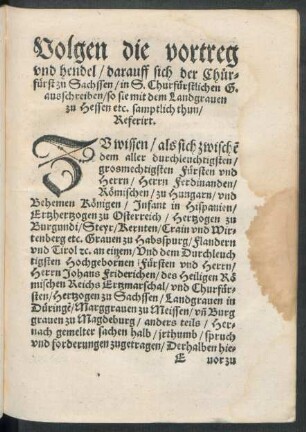 Volgen die vortreg
vnd hendel / darauff sich der Chür-
fürst zu Sachssen / in S. Churfürstlichen G.
ausschreiben / so sie mit dem Landgrauen
zu Hessen etc. samptlich thun /
Referirt.
ZV wissen / als sich zwischē
dem aller durchleuchtigsten /
grosmechtigsten Fürsten vnd
Herrn / Herrn Ferdinanden /
Römischen / zu Hungarn / vnd
Behemen Königen / Infant in Hispanien /
Ertzhertzogen zu Osterreich / Hertzogen zu
Burgundi / Steyr / Kernten / Crain vnd Wir-
tenberg etc. Grauen zu Habsspurg / Flandern
vnd Tirol ꝛc. an einem / Vnd dem Durchleuch
tigsten Hochgebornen Fürsten vnd Herrn /
Herrn Johans Friderichen / des Heiligen Rö
mischen Reichs Ertzmarschal / vnd Churfür-
sten / Hertzogen zu Sachssen / Landgrauen in
Düringē / Marggrauen zu Meissen / vñ Burg
grauen zu Magdeburg / anders teils / Her-
nach gemelter sachen halb / jrthumb / spruch
vnd forderungen zugetragen / Derhalben hie-
E uor zu